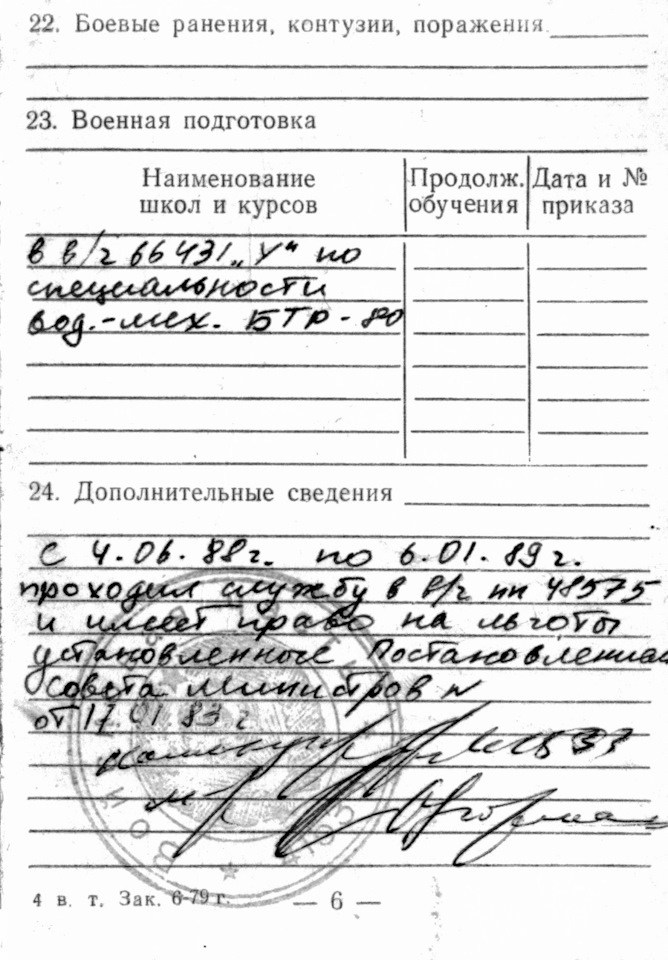 22. Боевые ранения, контузии, поражения
23. Военная подготовка
Наименование школ и курсов
Продолж. обучения
Дата и № приказа
в в/ч 66431 „У“ по
специальности
вод.-мех. БТР-80
24. Дополнительные сведения
С 4.06.88г. по 6.01.89г.
проходил службу в в/ч пп 48575
и имеет право на льготы
установленные Постановлением
Совета Министров
от 17.01.83г
4 в. т. Зак. 6-79 г.
— 6 —